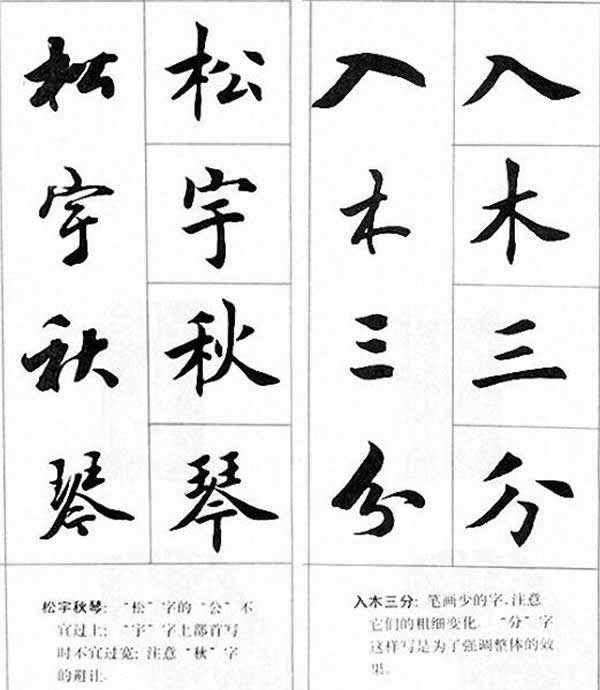 松宇秋琴
松宇秋琴
松宇秋琴: “松”字的“公”不
宜过上; “宇”字上部首写
时不宜过宽; 注意“秋”字
的避让.
入木三分
入木三分
入木三分: 笔画少的字, 注意
它们的粗细变化. “分”字
这样写是为了强调整体的效
果.